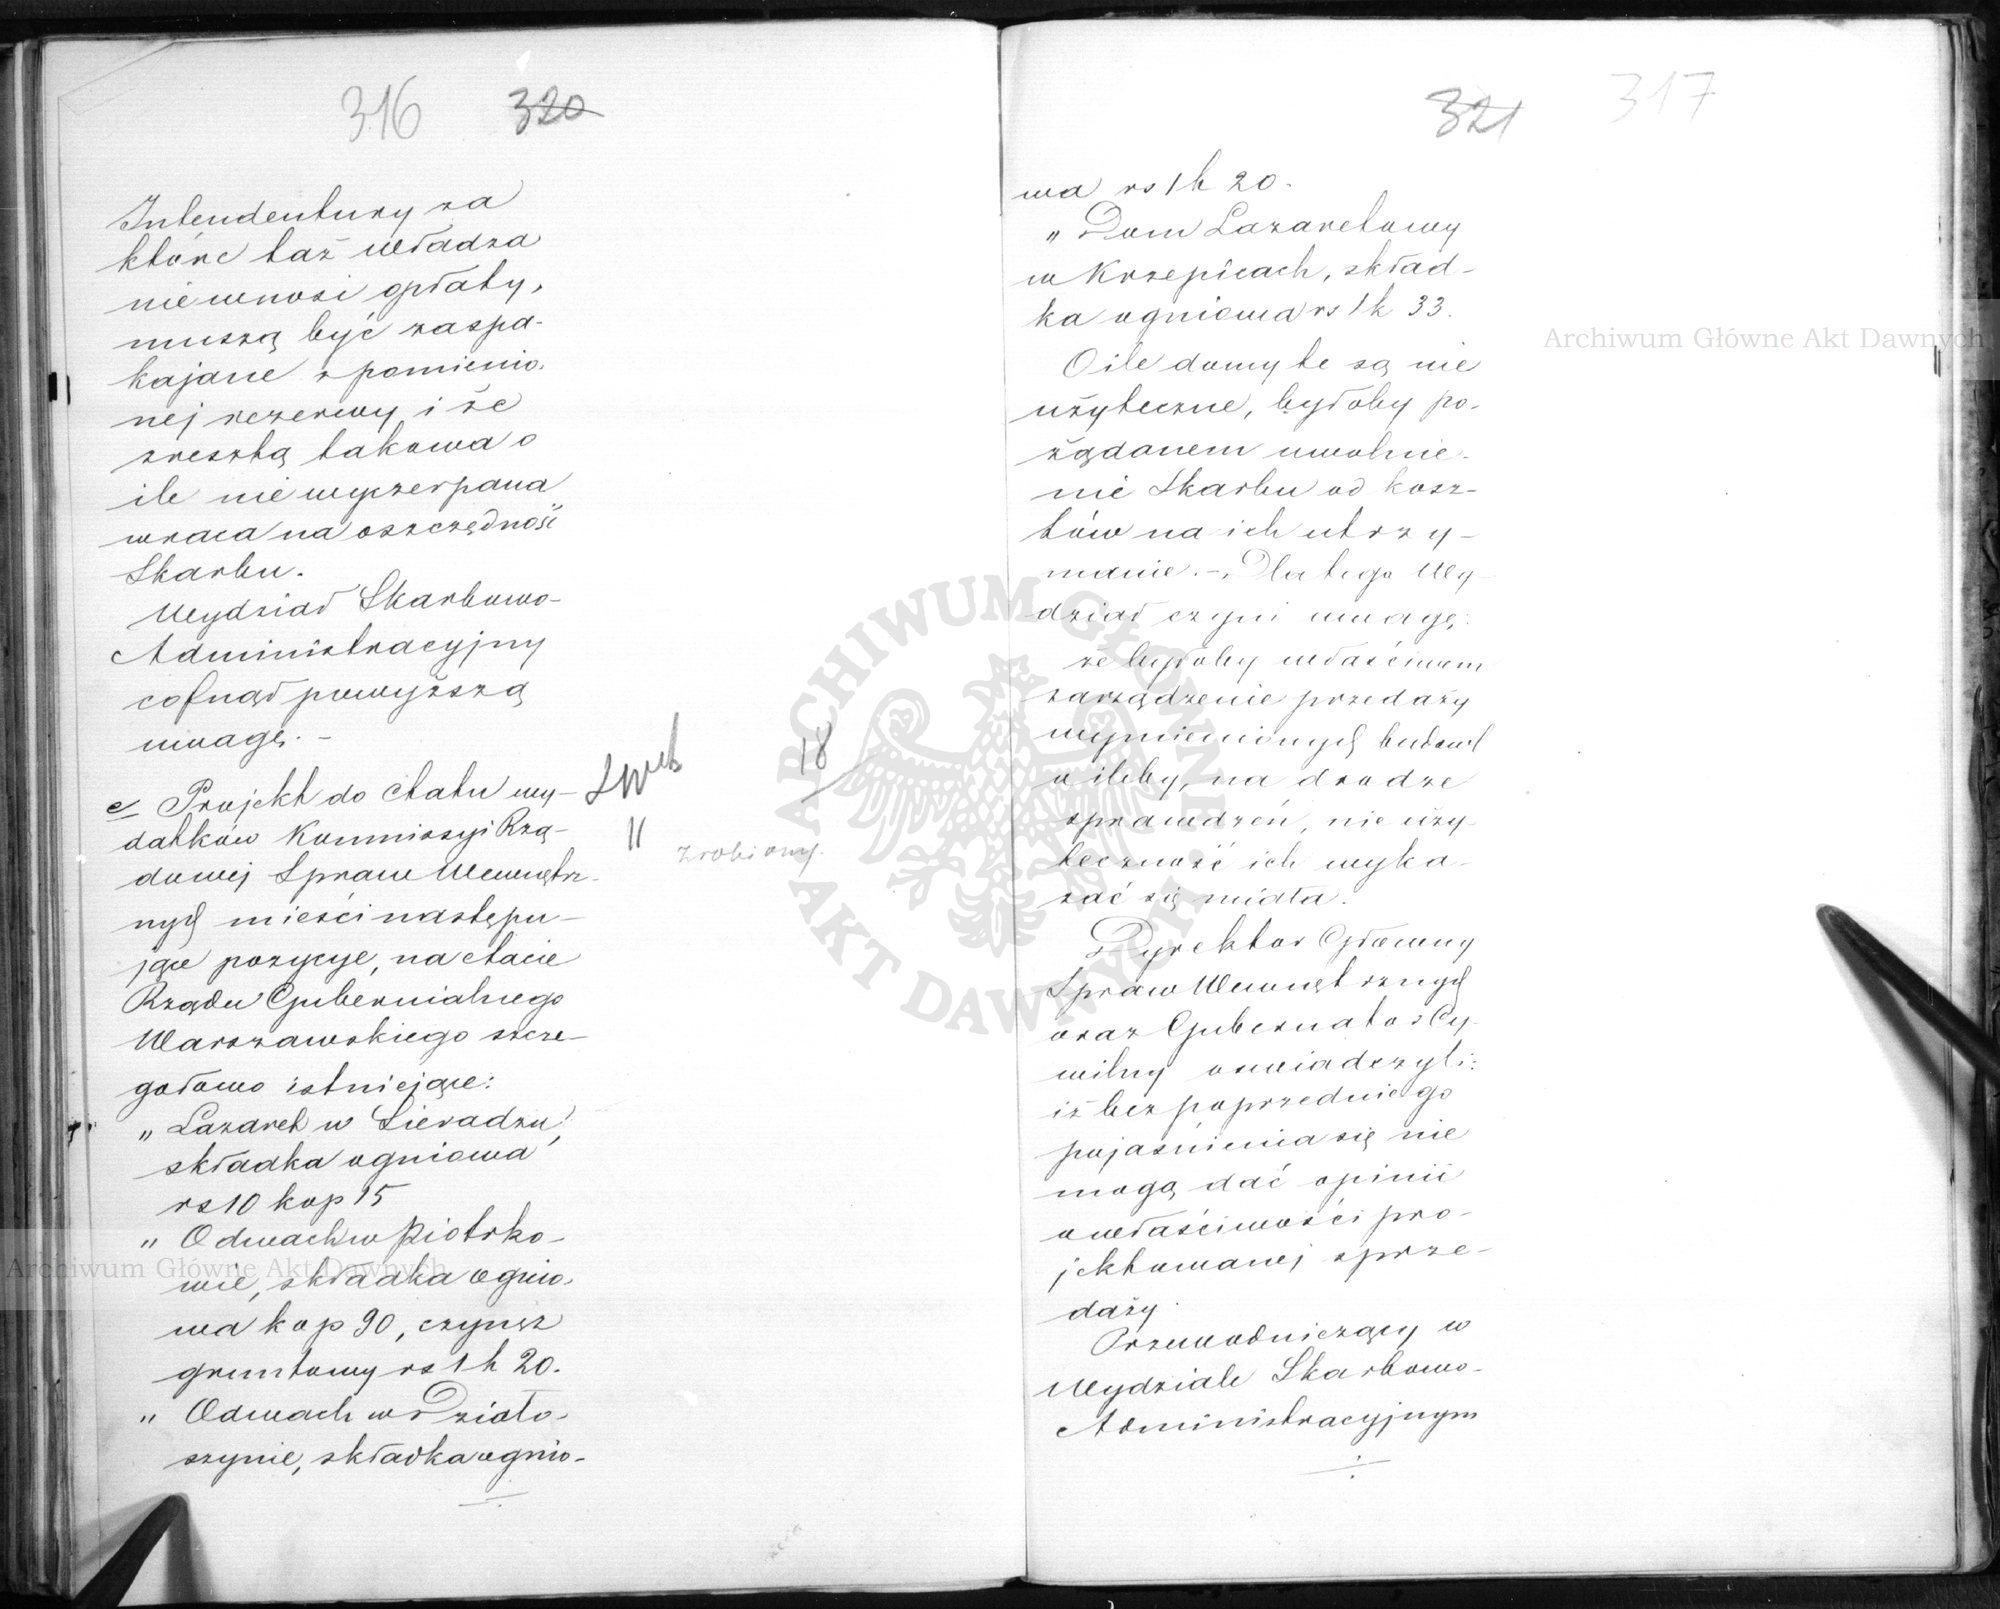 316 320
Intendentury za
które taż władza
nie wnosi opłaty,
muszą być zaspa-
kajane z pomienio-
nej rezerwy, i że
zresztą takowa o
ile nie wyczerpana
wraca na oszczędność
Skarbu.
Wydział Skarbowo-
Administracyjny
cofnął powyższą
uwagę. -
e/ Projekt do etatu wy-
datków Kommissyi Rzą-
dowej Spraw Wewnętrz-
nych mieści następu-
jące pozycye, na etacie
Rządu Gubernialnego
Warszawskiego szcze-
gółowo istniejące:
" Lazaret w Sieradzu,
składka ogniowa
rs 10 kop 15
" Odwach w Piotrko-
wie, składka ognio-
wa kop 90, czynsz
gruntowy rs 1 k 20.
" Odwach w Działo-
szynie, składka ognio-
18
11
zrobiony.
321 317
wa rs 1 k 20.
" Dom Lazaretowy
w Krzepicach, skład-
ka ogniowa rs 1 k 33.
O ile domy te są nie
użyteczne, byłoby po-
żądanem uwolnie-
nie Skarbu od kosz-
tów na ich utrzy-
manie. - Dla tego Wy-
dział czyni uwagę:
że byłoby właściwem
zarządzenie przedaży
wymienionych budowl
o ileby, na drodze
sprawdzeń, nie uży-
teczność ich wyka-
zać się miała.
Dyrektor Główny
Spraw Wewnętrznych
oraz Gubernator Cy-
wilny oświadczyli:
iż bez poprzedniego
pojaśnienia się nie
mogą dać opinii
o właściwości pro-
jektowanej sprze-
daży.
Przewodniczący w
Wydziale Skarbowo-
Administracyjnym
Archiwum Główne Akt Dawnych
Archiwum Główne Akt Dawnych
ARCHIWUM GŁÓWNE AKT DAWNYCH